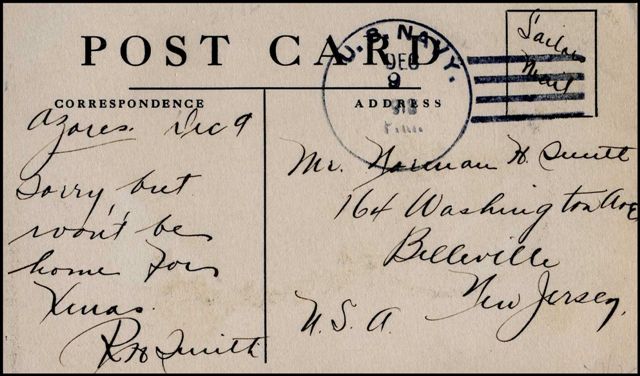 POST CARD
U.S. NAVY.
DEC
9
Sailor
Mail
CORRESPONDENCE
ADDRESS
Azores. Dec 9
Sorry but
won't be
home for
Xmas.
RH Smith
Mr. Norman H. Smith
164 Washington Ave
Belleville
New Jersey.
U.S.A.